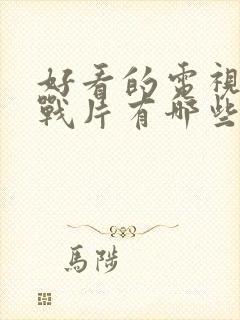 好看的電視
戰片有哪些
馬陟